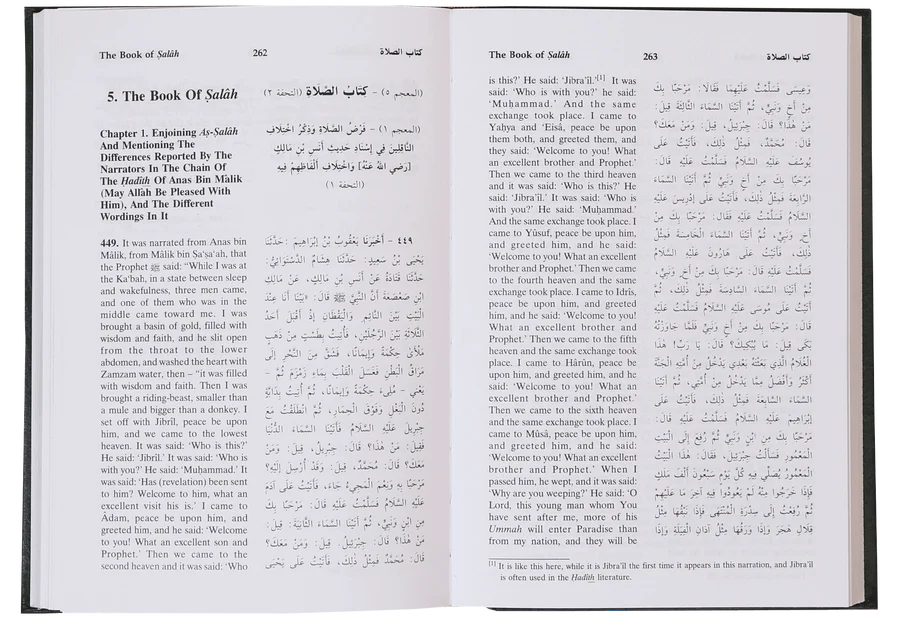 The Book of Ṣalâh 262 كتاب الصلاة
5. The Book Of Ṣalâh
(المعجم ٥) - كتاب الصلاة (التحفة ٢)
Chapter 1. Enjoining Aṣ-Ṣalâh
And Mentioning The
Differences Reported By The
Narrators In The Chain Of
The Ḥadîth Of Anas Bin Mâlik
(May Allâh Be Pleased With
Him), And The Different
Wordings In It
(المعجم ١) - فَرْضُ الصَّلَاةِ وَذِكْرُ اخْتِلَافِ
النَّاقِلِينَ فِي إِسْنَادِ حَدِيثِ أَنَسِ بْنِ مَالِكٍ
[رَضِيَ اللهُ عَنْهُ] وَاخْتِلَافِ أَلْفَاظِهِمْ فِيهِ
(التحفة ١)
449. It was narrated from Anas bin
Mâlik, from Mâlik bin Ṣa'ṣa'ah, that
the Prophet ﷺ said: "While I was at
the Ka'bah, in a state between sleep
and wakefulness, three men came,
and one of them who was in the
middle came toward me. I was
brought a basin of gold, filled with
wisdom and faith, and he slit open
from the throat to the lower
abdomen, and washed the heart with
Zamzam water, then – "it was filled
with wisdom and faith. Then I was
brought a riding-beast, smaller than
a mule and bigger than a donkey. I
set off with Jibrîl, peace be upon
him, and we came to the lowest
heaven. It was said: 'Who is this?'
He said: 'Jibrîl.' It was said: 'Who is
with you?' He said: 'Muḥammad.' It
was said: 'Has (revelation) been sent
to him? Welcome to him, what an
excellent visit his is.' I came to
Âdam, peace be upon him, and
greeted him, and he said: 'Welcome
to you! What an excellent son and
Prophet.' Then we came to the
second heaven and it was said: 'Who
٤٤٩ - أَخْبَرَنَا يَعْقُوبُ بْنُ إِبْرَاهِيمَ: حَدَّثَنَا
يَحْيَى بْنُ سَعِيدٍ: حَدَّثَنَا هِشَامٌ الدَّسْتَوَائِيُّ:
حَدَّثَنَا قَتَادَةُ عَنْ أَنَسِ بْنِ مَالِكٍ، عَنْ مَالِكِ
ابْنِ صَعْصَعَةَ أَنَّ النَّبِيَّ ﷺ قَالَ: «بَيْنَا أَنَا عِنْدَ
الْبَيْتِ بَيْنَ النَّائِمِ وَالْيَقْظَانِ إِذْ أَقْبَلَ أَحَدُ
الثَّلَاثَةِ بَيْنَ الرَّجُلَيْنِ، فَأُتِيتُ بِطَسْتٍ مِنْ ذَهَبٍ
مَلْآنَ حِكْمَةً وَإِيمَانًا، فَشَقَّ مِنَ النَّحْرِ إِلَى
مَرَاقِّ الْبَطْنِ فَغَسَلَ الْقَلْبَ بِمَاءِ زَمْزَمَ ثُمَّ -
يَعْنِي - مُلِىءَ حِكْمَةً وَإِيمَانًا، ثُمَّ أُتِيتُ بِدَابَّةٍ
دُونَ الْبَغْلِ وَفَوْقَ الْحِمَارِ، ثُمَّ انْطَلَقْتُ مَعَ
جِبْرِيلَ عَلَيْهِ السَّلَامُ فَأَتَيْنَا السَّمَاءَ الدُّنْيَا
فَقِيلَ: مَنْ هٰذَا؟ قَالَ: جِبْرِيلُ، قِيلَ: وَمَنْ
مَعَكَ؟ قَالَ: مُحَمَّدٌ، قِيلَ: وَقَدْ أُرْسِلَ إِلَيْهِ؟
مَرْحَبًا بِهِ وَنِعْمَ الْمَجِيءُ جَاءَ، فَأَتَيْتُ عَلَى آدَمَ
عَلَيْهِ السَّلَامُ فَسَلَّمْتُ عَلَيْهِ قَالَ: مَرْحَبًا بِكَ
مِنِ ابْنٍ وَنَبِيٍّ، ثُمَّ أَتَيْنَا السَّمَاءَ الثَّانِيَةَ: قِيلَ:
مَنْ هٰذَا؟ قَالَ: جِبْرَئِيلُ، قِيلَ: وَمَنْ مَعَكَ؟
قَالَ: مُحَمَّدٌ فَمِثْلُ ذٰلِكَ، فَأَتَيْتُ عَلَى يَحْيَى
The Book of Ṣalâh 263 كتاب الصلاة
is this?' He said: 'Jibra'îl.'[1] It was
said: 'Who is with you?' he said:
'Muḥammad.' And the same
exchange took place. I came to
Yaḥya and 'Eisâ, peace be upon
them both, and greeted them, and
they said: 'Welcome to you! What
an excellent brother and Prophet.'
Then we came to the third heaven
and it was said: 'Who is this?' He
said: 'Jibra'îl.' It was said: 'Who is
with you?' He said: 'Muḥammad.'
And the same exchange took place. I
came to Yûsuf, peace be upon him,
and greeted him, and he said:
'Welcome to you! What an excellent
brother and Prophet.' Then we came
to the fourth heaven and the same
exchange took place. I came to Idrîs,
peace be upon him, and greeted
him, and he said: 'Welcome to you!
What an excellent brother and
Prophet.' Then we came to the fifth
heaven and the same exchange took
place. I came to Hârûn, peace be
upon him, and greeted him, and he
said: 'Welcome to you! What an
excellent brother and Prophet.'
Then we came to the sixth heaven
and the same exchange took place. I
came to Mûsâ, peace be upon him,
and greeted him, and he said:
'Welcome to you! What an excellent
brother and Prophet.' When I
passed him, he wept, and it was said:
'Why are you weeping?' He said: 'O
Lord, this young man whom You
have sent after me, more of his
Ummah will enter Paradise than
from my nation, and they will be
وَعِيسَى فَسَلَّمْتُ عَلَيْهِمَا فَقَالَا: مَرْحَبًا بِكَ
مِنْ أَخٍ وَنَبِيٍّ، ثُمَّ أَتَيْنَا السَّمَاءَ الثَّالِثَةَ قِيلَ:
مَنْ هٰذَا؟ قَالَ: جِبْرَئِيلُ، قِيلَ: وَمَنْ مَعَكَ؟
قَالَ: مُحَمَّدٌ، فَمِثْلُ ذٰلِكَ، فَأَتَيْتُ عَلَى
يُوسُفَ عَلَيْهِ السَّلَامُ فَسَلَّمْتُ عَلَيْهِ قَالَ:
مَرْحَبًا بِكَ مِنْ أَخٍ وَنَبِيٍّ ثُمَّ أَتَيْنَا السَّمَاءَ
الرَّابِعَةَ فَمِثْلُ ذٰلِكَ، فَأَتَيْتُ عَلَى إِدْرِيسَ عَلَيْهِ
السَّلَامُ فَسَلَّمْتُ عَلَيْهِ فَقَالَ: مَرْحَبًا بِكَ مِنْ
أَخٍ وَنَبِيٍّ، ثُمَّ أَتَيْنَا السَّمَاءَ الْخَامِسَةَ فَمِثْلُ
ذٰلِكَ، فَأَتَيْتُ عَلَى هَارُونَ عَلَيْهِ السَّلَامُ
فَسَلَّمْتُ عَلَيْهِ قَالَ: مَرْحَبًا بِكَ مِنْ أَخٍ وَنَبِيٍّ،
ثُمَّ أَتَيْنَا السَّمَاءَ السَّادِسَةَ فَمِثْلُ ذٰلِكَ، ثُمَّ
أَتَيْتُ عَلَى مُوسَى عَلَيْهِ السَّلَامُ فَسَلَّمْتُ عَلَيْهِ
قَالَ: مَرْحَبًا بِكَ مِنْ أَخٍ وَنَبِيٍّ فَلَمَّا جَاوَزْتُهُ
بَكَى قِيلَ: مَا يُبْكِيكَ؟ قَالَ: يَا رَبِّ! هٰذَا
الْغُلَامُ الَّذِي بَعَثْتَهُ بَعْدِي يَدْخُلُ مِنْ أُمَّتِهِ الْجَنَّةَ
أَكْثَرُ وَأَفْضَلُ مِمَّا يَدْخُلُ مِنْ أُمَّتِي، ثُمَّ أَتَيْنَا
السَّمَاءَ السَّابِعَةَ فَمِثْلُ ذٰلِكَ، فَأَتَيْتُ عَلَى
إِبْرَاهِيمَ عَلَيْهِ السَّلَامُ فَسَلَّمْتُ عَلَيْهِ قَالَ:
مَرْحَبًا بِكَ مِنِ ابْنٍ وَنَبِيٍّ ثُمَّ رُفِعَ إِلَى الْبَيْتِ
الْمَعْمُورِ فَسَأَلْتُ جِبْرَئِيلَ، فَقَالَ: هٰذَا الْبَيْتُ
الْمَعْمُورُ يُصَلِّي فِيهِ كُلَّ يَوْمٍ سَبْعُونَ أَلْفَ مَلَكٍ
فَإِذَا خَرَجُوا مِنْهُ لَمْ يَعُودُوا فِيهِ آخِرَ مَا عَلَيْهِمْ
ثُمَّ رُفِعَتْ إِلَى سِدْرَةِ الْمُنْتَهَى فَإِذَا نَبْقُهَا مِثْلُ
قِلَالِ هَجَرَ وَإِذَا وَرَقُهَا مِثْلُ آذَانِ الْفِيَلَةِ وَإِذَا
[1] It is like this here, while it is Jibra'îl the first time it appears in this narration, and Jibra'îl
is often used in the Ḥadîth literature.